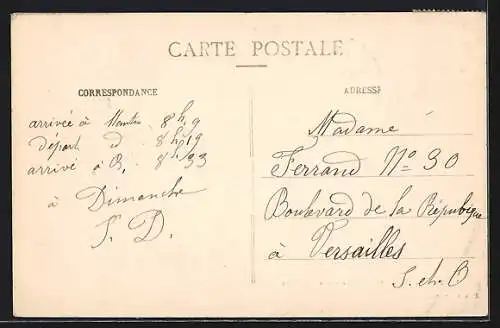 CARTE POSTALE
CORRESPONDANCE
arrivée à 8h,9
Départ d 8h,19
arrivé à 8h,33
à Dimanche
S. D.
ADRESSE
Madame
Ferrand Nº 30
Boulevard de la République
à Versailles
S. et. O